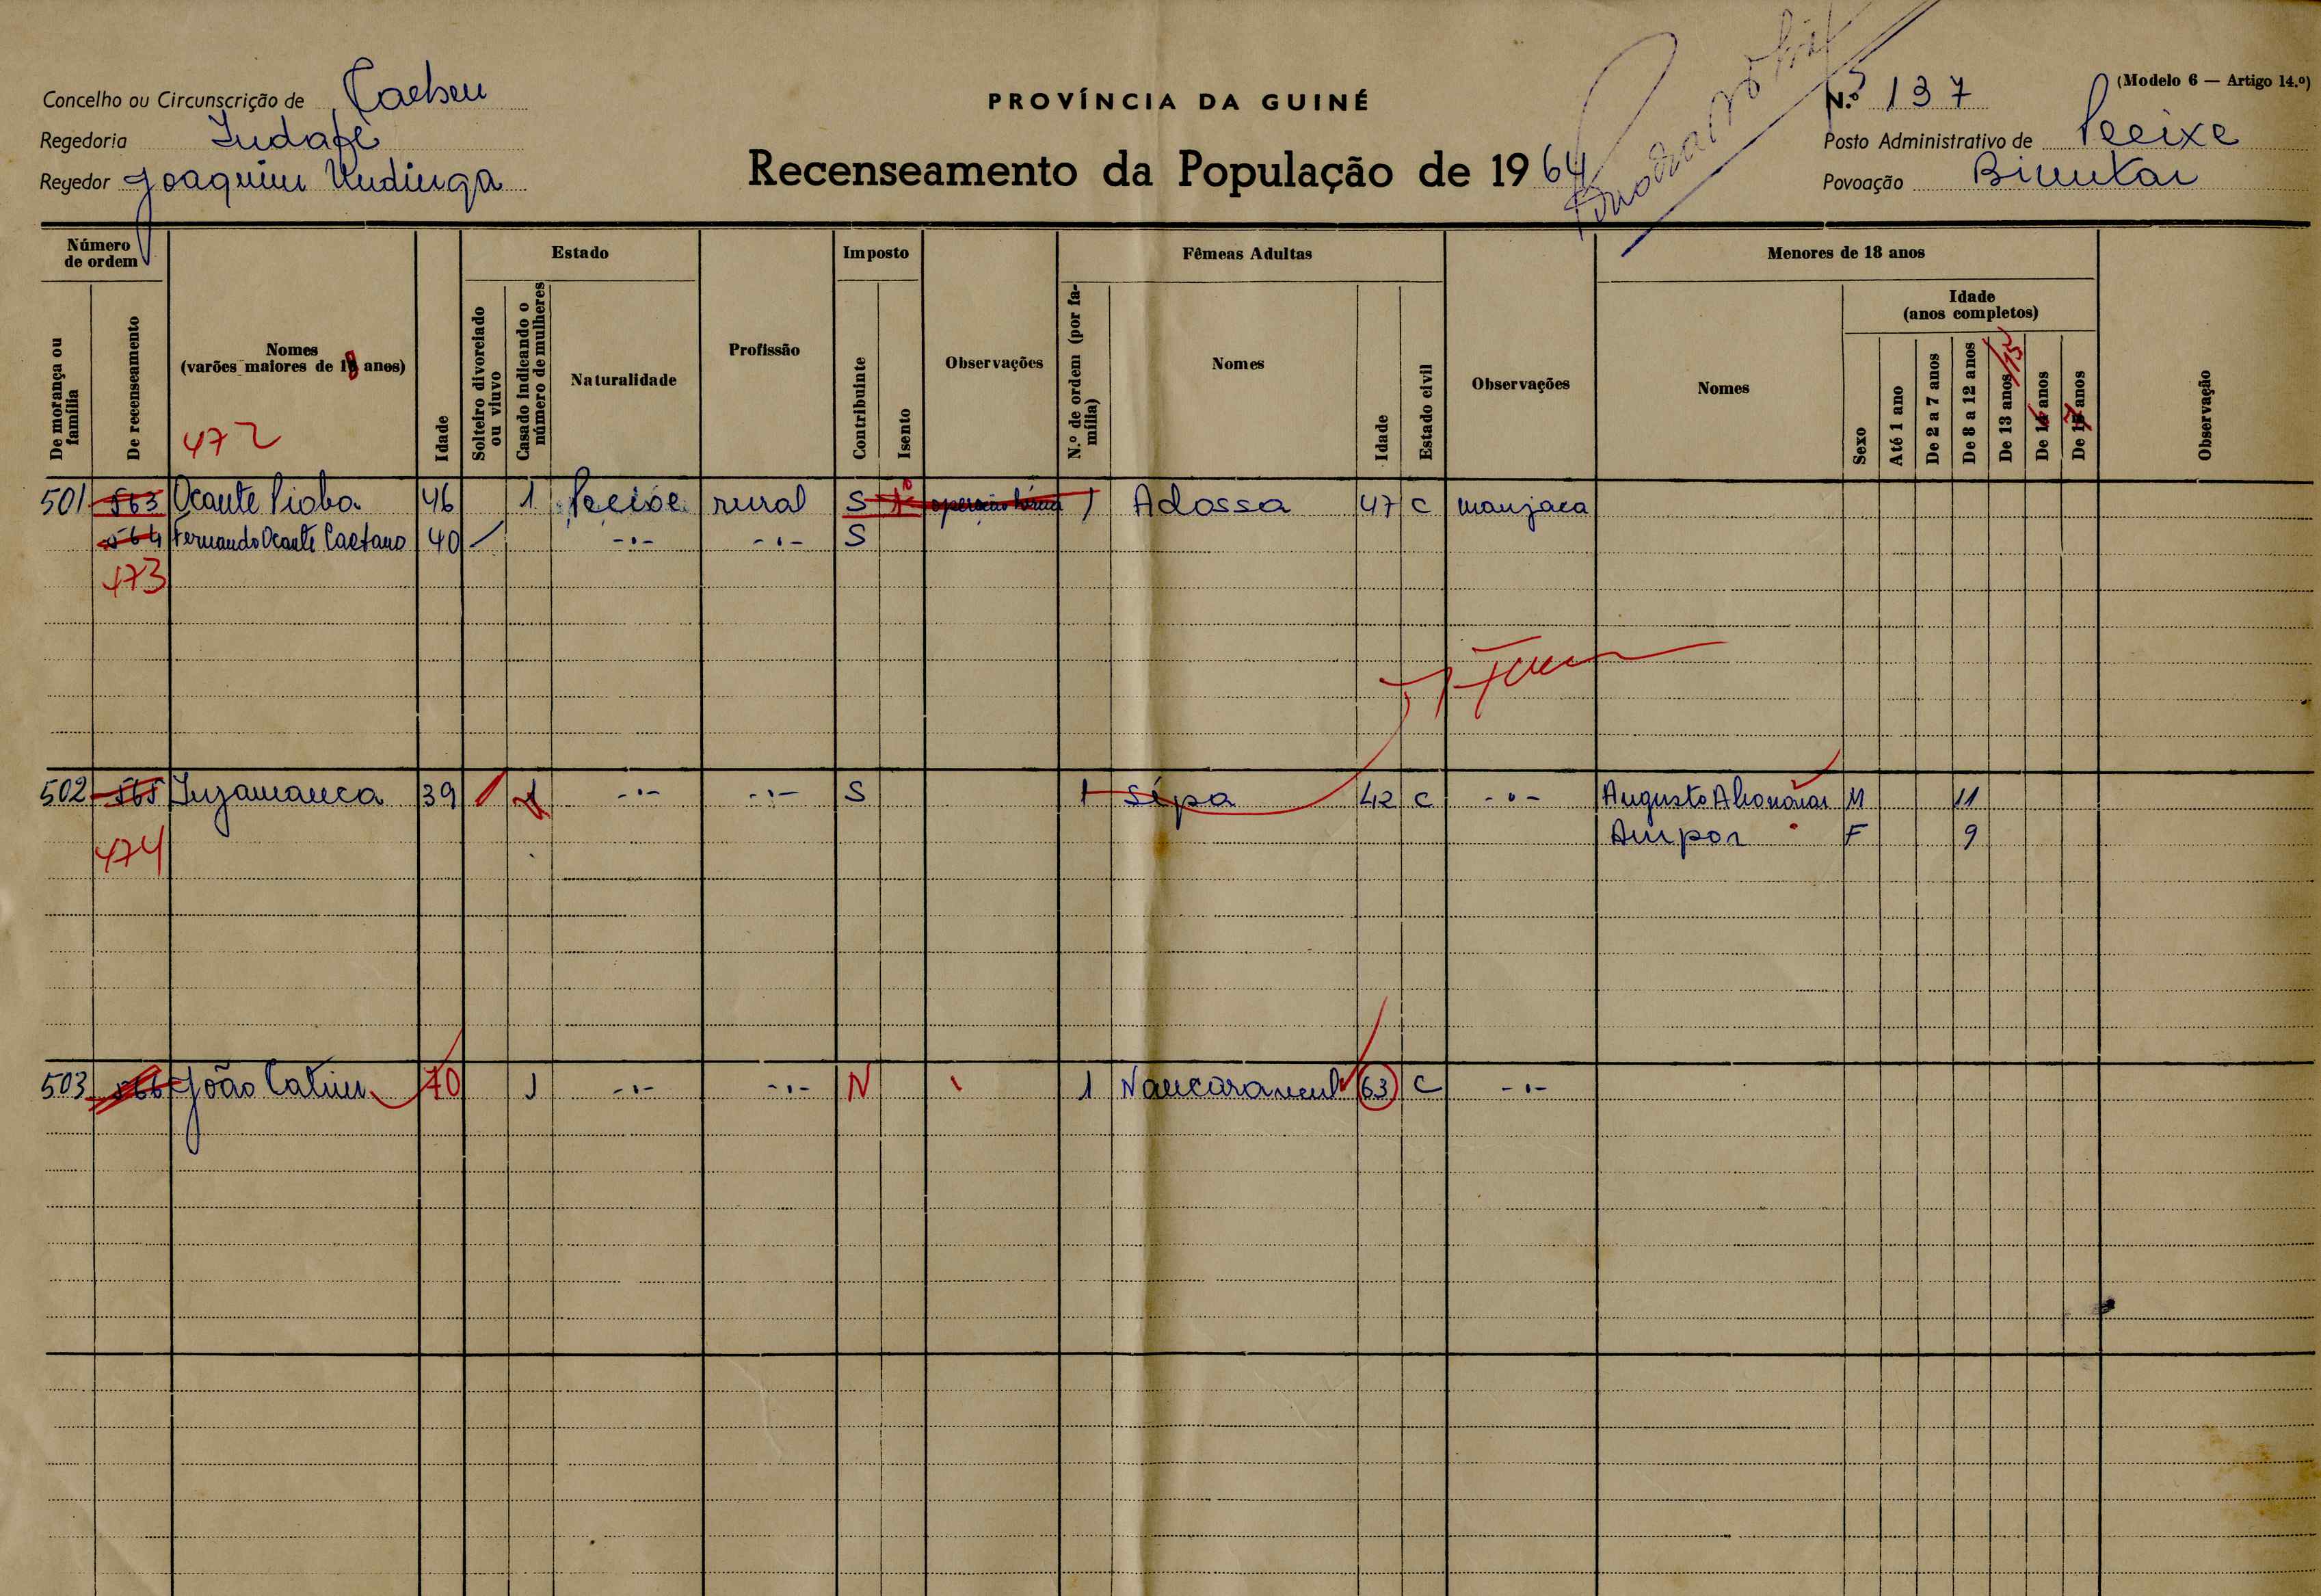 (Modelo 6 — Artigo 14.º)
Concelho ou Circunscrição de Cacheu
PROVÍNCIA DA GUINÉ
N.º 137
Regedoria
Posto Administrativo de Pecixe
Regedor Joaquim
Recenseamento da População de 1964
Povoação
Número de ordem
Estado
Imposto
Fêmeas Adultas
Menores de 18 anos
De morança ou família
De recenseamento
Nomes
(varões maiores de 18 anos)
Idade
Solteiro divorciado ou viuvo
Casado indicando o número de mulheres
Naturalidade
Profissão
Contribuinte
Isento
Observações
N.º de ordem (por família)
Nomes
Idade
Estado civil
Observações
Nomes
Idade
(anos completos)
Sexo
Até 1 ano
De 2 a 7 anos
De 8 a 12 anos
De 13 anos /15
De anos
De anos
Observação
472
501 563 Ocante 46 1 Pecixe rural S 1 Adossa 47 C manjaca
564 Fernando Ocante Caetano 40 -·- -·- S
473
502 565 39 -·- -·- S 1 Sipa 42 C -·- Augusto M 11
474 Ampor F 9
503 566 João Catim 70 1 -·- -·- N 1 63 C -·-